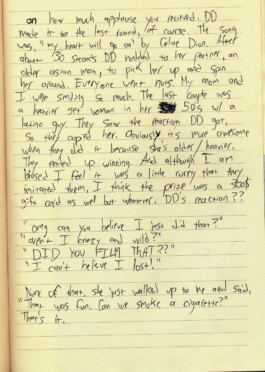 on how much applause you recieved. DD
made it to the last round, of course. The song
was, "my heart will go on" by Celine Dion. After
about 30 seconds DD nodded to her partner, an
older asian man, to pick her up and spin
her around. Everyone went nuts. My mom and
I were smiling so much. The last couple was
a heavier set woman in her 50s w/ a
latino guy. They saw the reaction DD got,
so they copied her. Obviously its more awesome
when they did it because she's older/heavier.
They ended up winning. And although I am
biased I feel it was a little corny that they
imitated them. I think the prize was a
gift card as well but whatever. DD's reaction??
"omg can you believe I just did that?"
"aren't I crazy and wild?"
"DID YOU FILM THAT??"
"I can't believe I lost!"
None of that. she just walked up to me and said,
"That was fun. Can we smoke a cigarette?"
That's it.